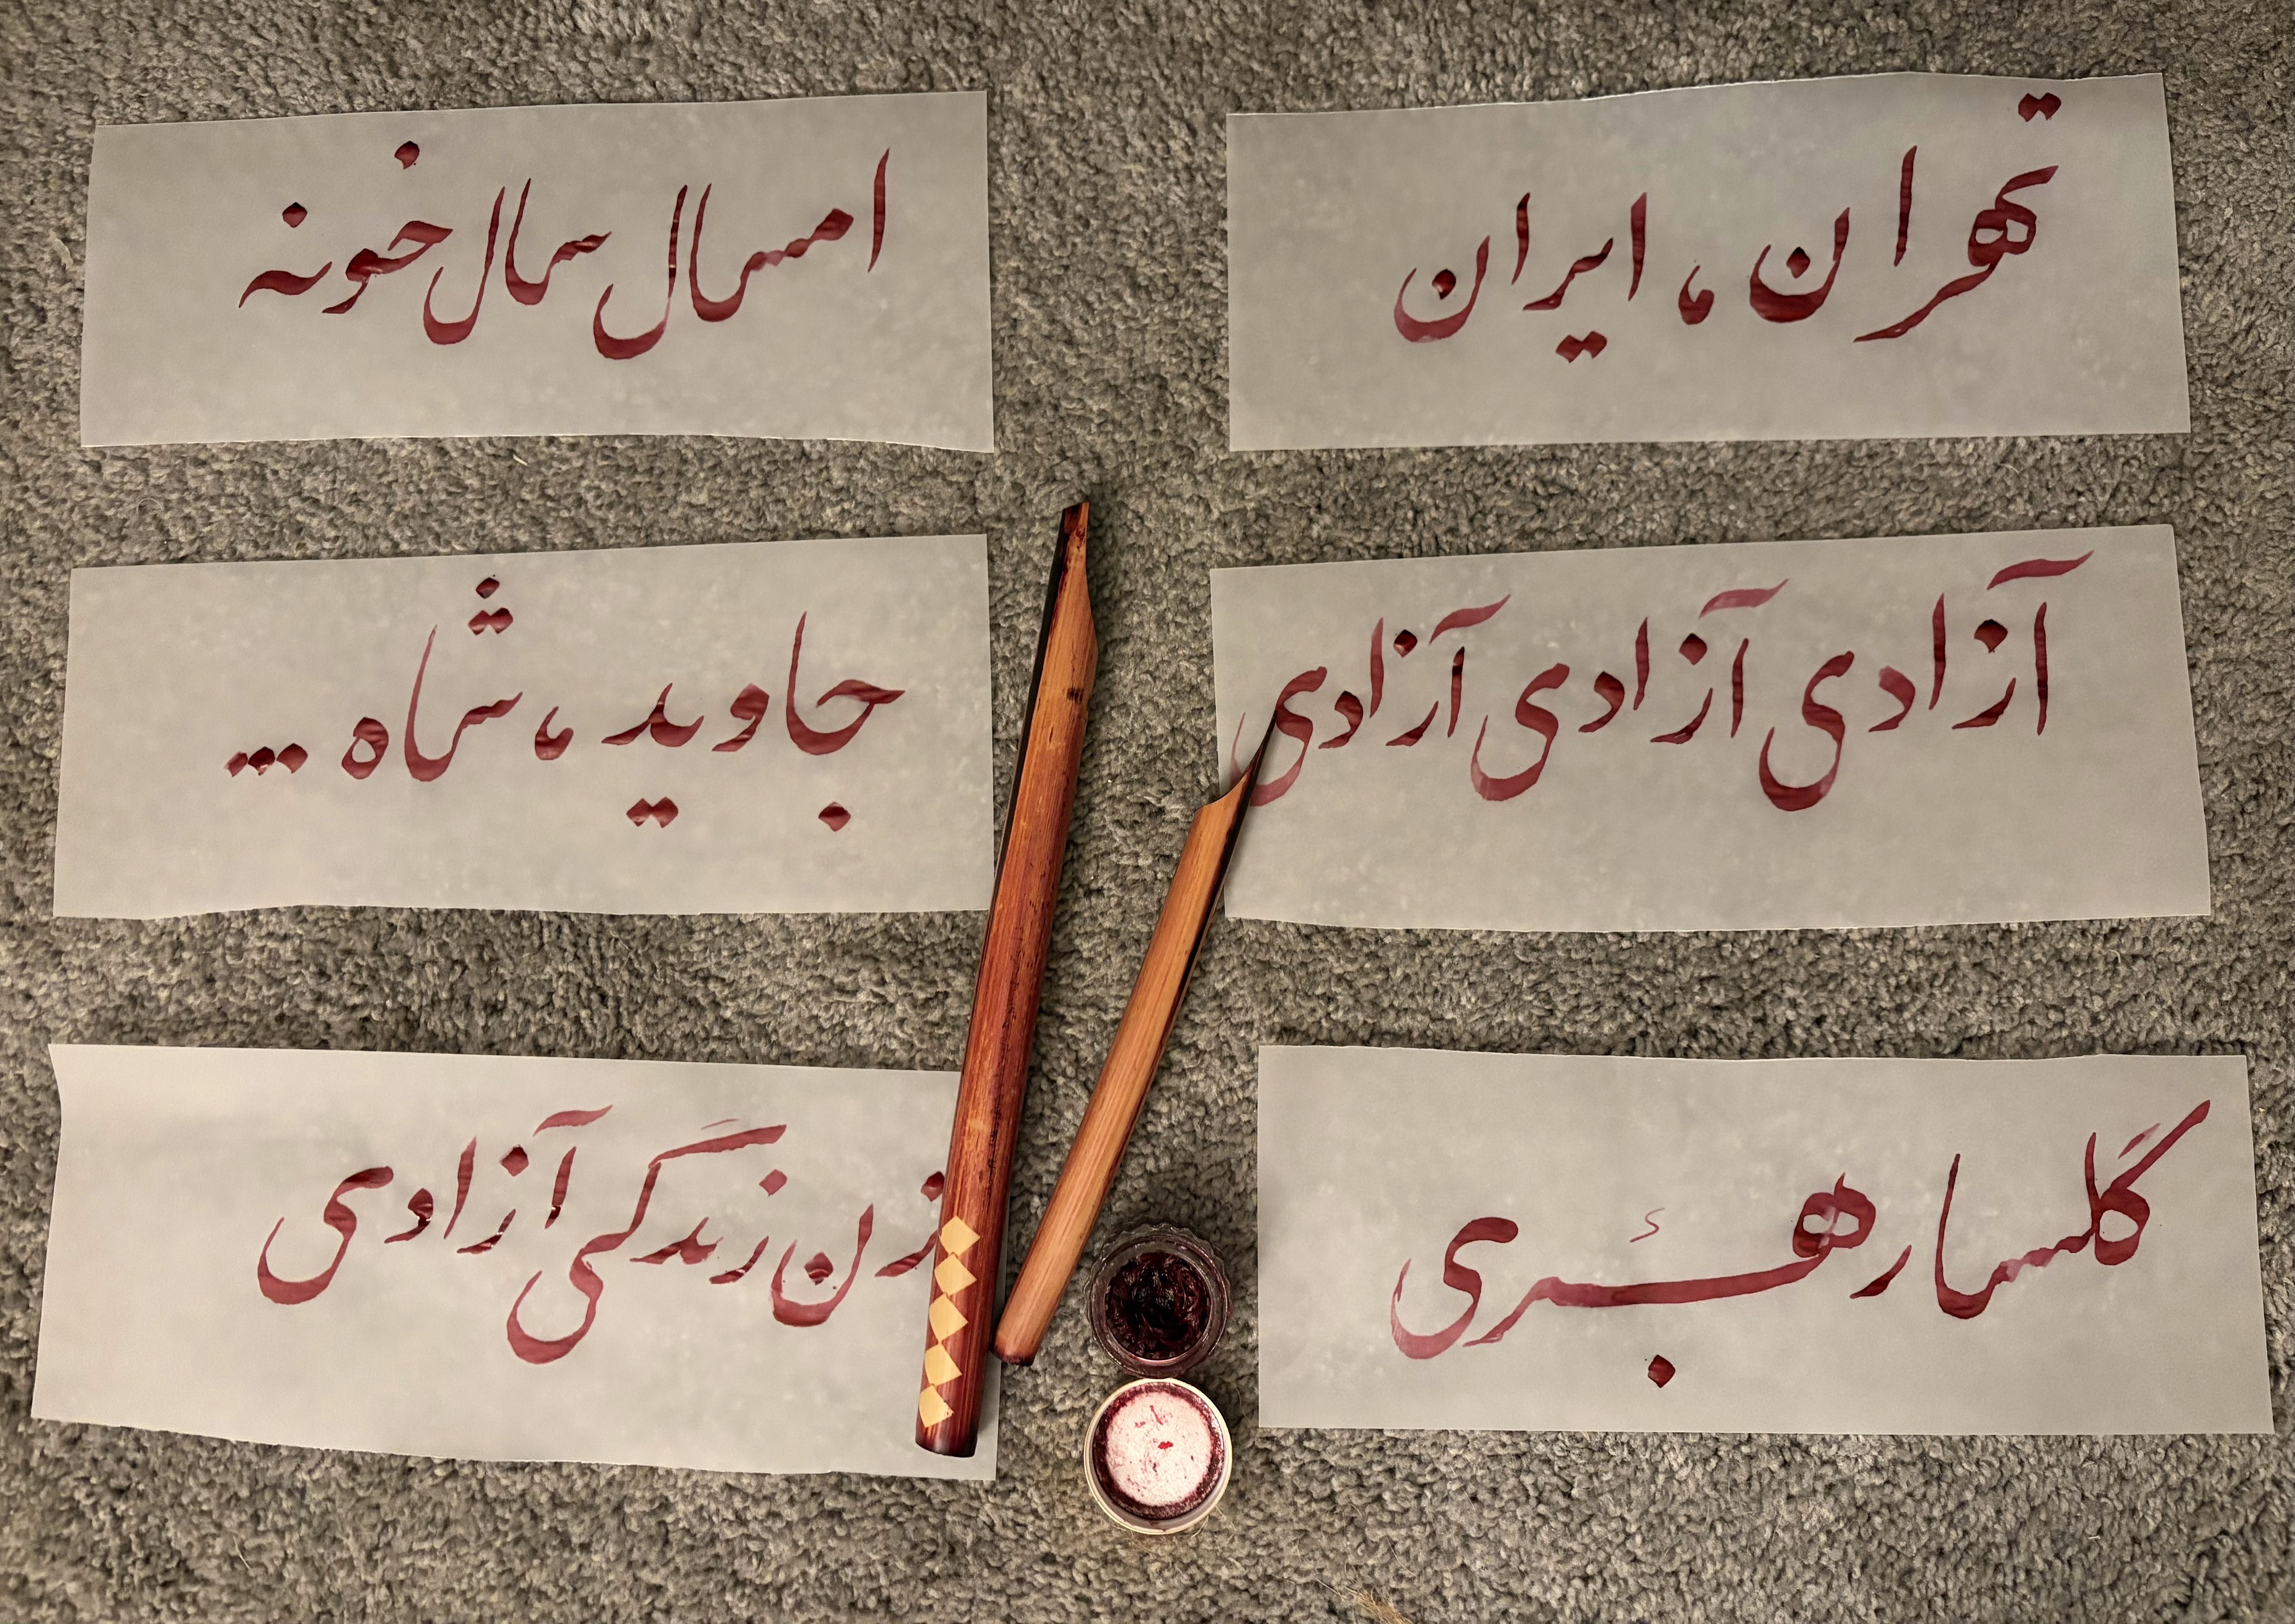 تهران، ایران
امسال سال خونه
آزادی آزادی آزادی
جاوید، شاه ...
گلسا رهبری
زن زندگی آزادی